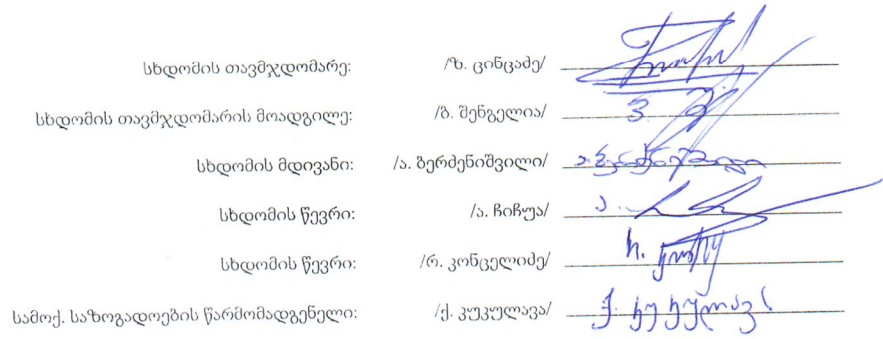 სხდომის თავმჯდომარე: /ზ. ცინცაძე/
სხდომის თავმჯდომარის მოადგილე: /ზ. შენგელია/
სხდომის მდივანი: /ა. ბერძენიშვილი/ ა. ბერძენიშვილი
სხდომის წევრი: /ა. ჩიჩუა/
სხდომის წევრი: /რ. კონცელიძე/
სამოქ. საზოგადოების წარმომადგენელი: /ქ. კუკულავა/ ქ. კუკულავა